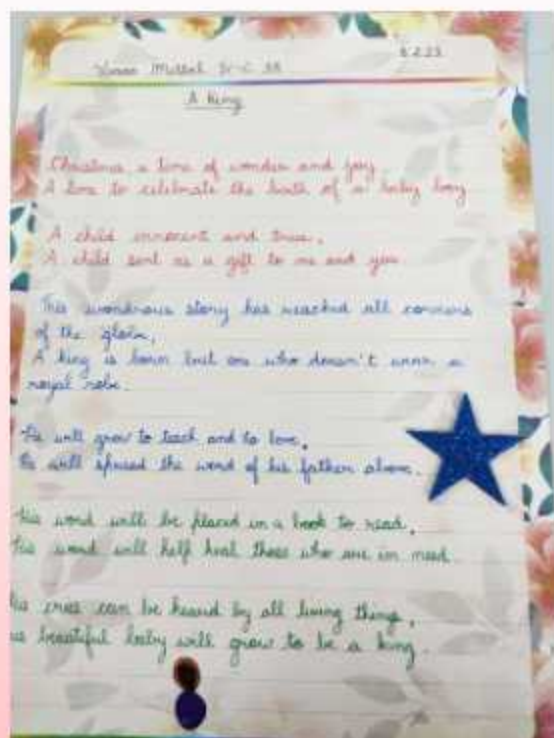 8.2.23
A King
Christmas a time of wonder and joy
A time to celebrate the birth of a baby boy
A child innocent and true,
A child sent as a gift to me and you
This wondrous story has reached all corners
of the globe,
A king is born but one who doesn't wear a
royal robe.
He will grow to teach and to love,
He will spread the word of his father above.
His word will be placed in a book to read,
His word will help heal those who are in need.
His cries can be heard by all living things,
beautiful baby will grow to be a king.